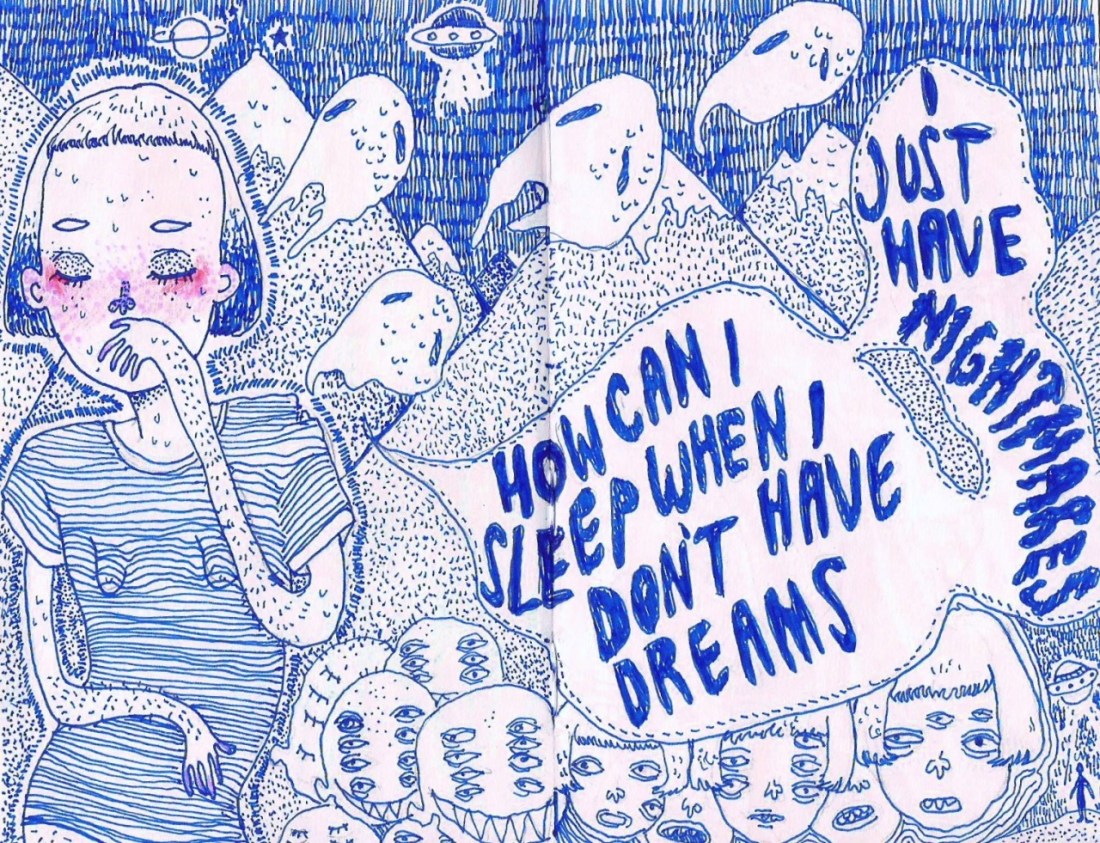 HOW CAN I
SLEEP WHEN I
DON'T HAVE
DREAMS
I
JUST
HAVE
NIGHTMARES